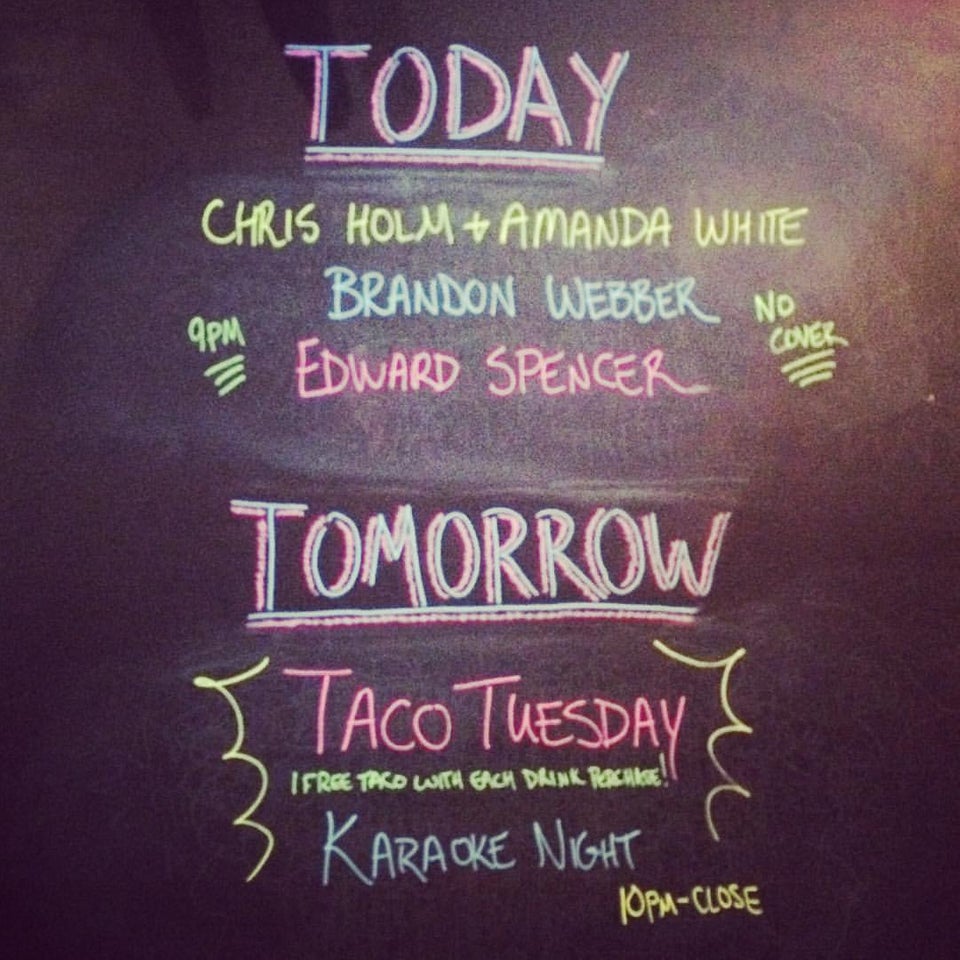 TODAY
CHRIS HOLM + AMANDA WHITE
BRANDON WEBBER
9PM
NO COVER
EDWARD SPENCER
TOMORROW
TACO TUESDAY
1 FREE TACO WITH EACH DRINK PERCHASE!
KARAOKE NIGHT
10PM-CLOSE